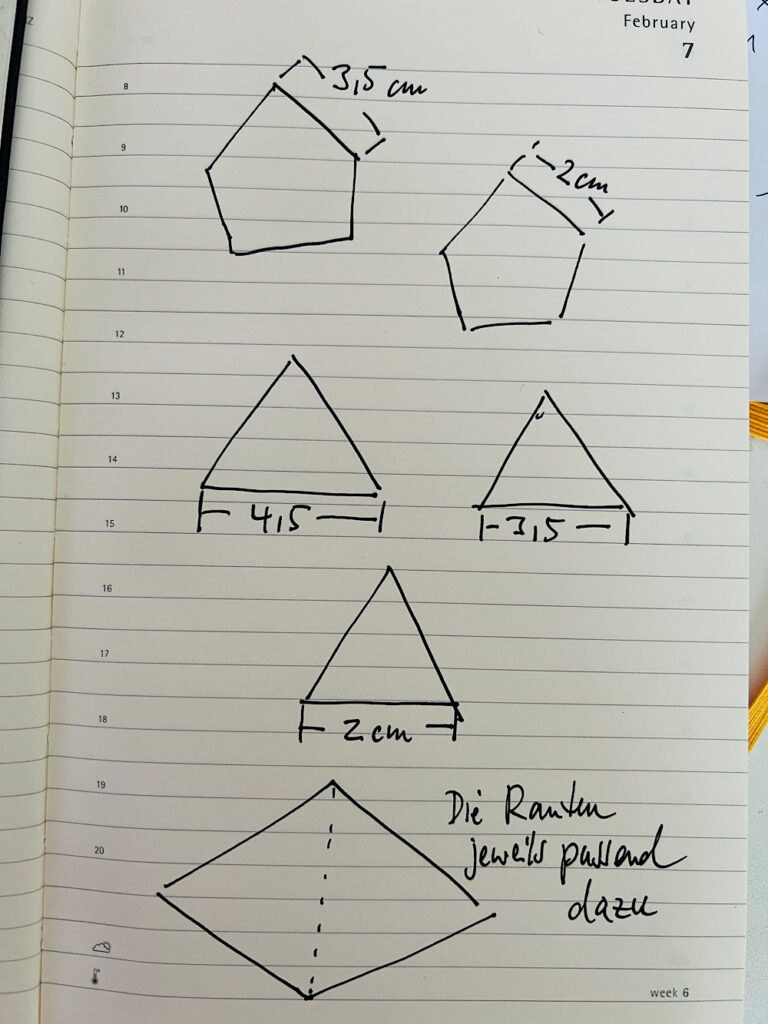 February
7
8
3,5 cm
9
2 cm
10
11
12
13
14
4,5
3,5
15
16
17
2 cm
18
19
Die Rauten
jeweils passend
dazu
20
week 6